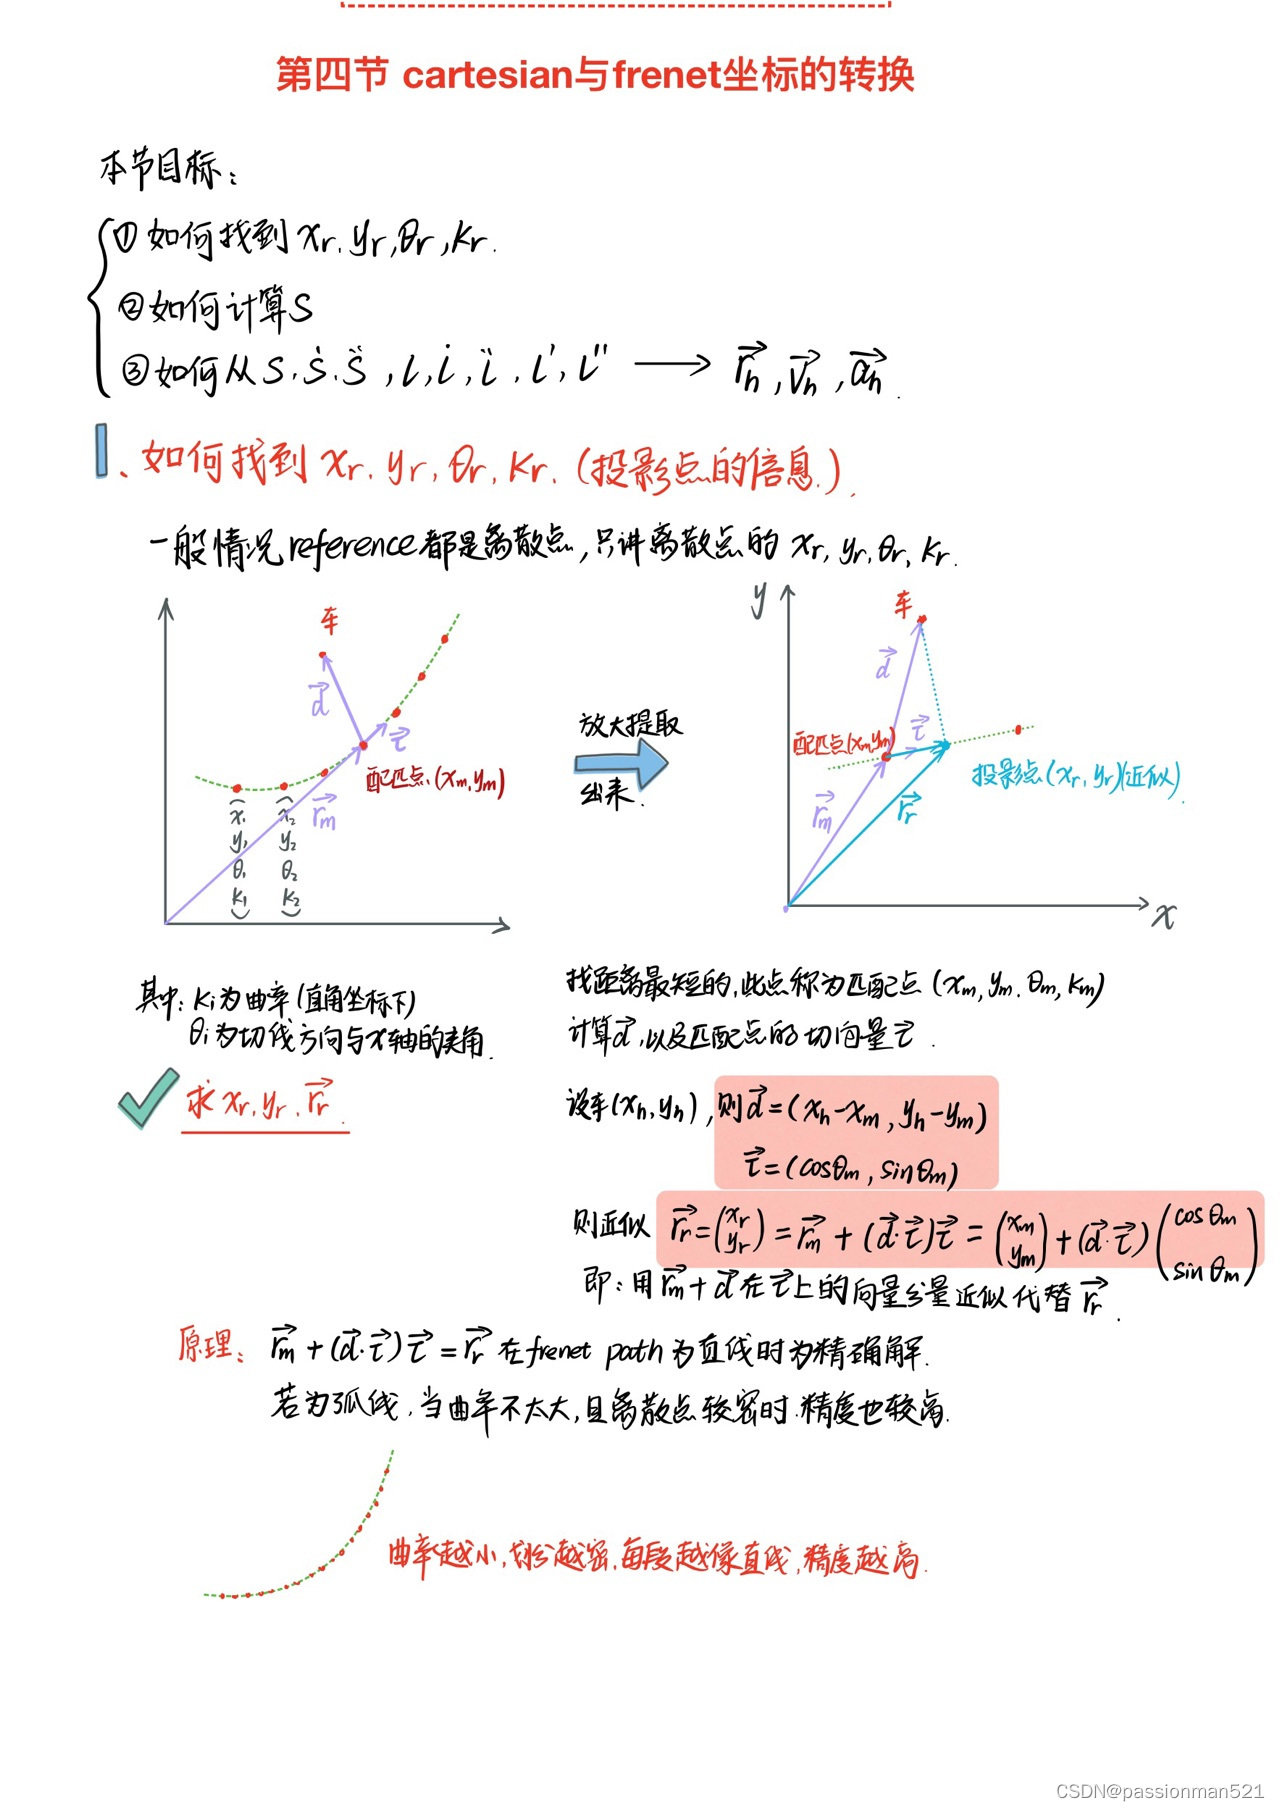 第四节 cartesian与frenet坐标的转换
本节目标:
① 如何找到 xr, yr, θr, kr.
② 如何计算 S
③ 如何从 S, Ṡ, S̈, l, l̇, l̈, l', l'' ⟶ r⃗h, v⃗h, a⃗h.
1、如何找到 xr, yr, θr, kr. (投影点的信息.).
一般情况 reference 都是离散点, 只讲离散点的 xr, yr, θr, kr.
车
d⃗
τ⃗
配匹点.(xm,ym)
r⃗m
(x₁ y₁ θ₁ k₁)
(x₂ y₂ θ₂ k₂)
放大提取
出来.
y
车
d⃗
τ⃗
配匹点(xm,ym)
投影点(xr,yr)(近似).
r⃗m
r⃗r
x
其中: ki为曲率(直角坐标下)
θi为切线方向与x轴的夹角.
找距离最短的,此点称为匹配点 (xm, ym, θm, km)
计算d⃗,以及匹配点的切向量τ⃗.
求 xr, yr, r⃗r.
设车(xh,yh), 则 d⃗=(xh-xm, yh-ym)
τ⃗=(cosθm, sinθm)
则近似 r⃗r=(xr yr) = r⃗m + (d⃗·τ⃗)τ⃗ = (xm ym) + (d⃗·τ⃗)(cosθm sinθm)
即: 用r⃗m+d⃗在τ⃗上的向量分量近似代替 r⃗r.
原理: r⃗m + (d⃗·τ⃗)τ⃗ = r⃗r 在frenet path 为直线时为精确解.
若为弧线, 当曲率不太大, 且离散点较密时.精度也较高.
曲率越小, 划分越密, 每段越像直线, 精度越高.
CSDN@passionman521